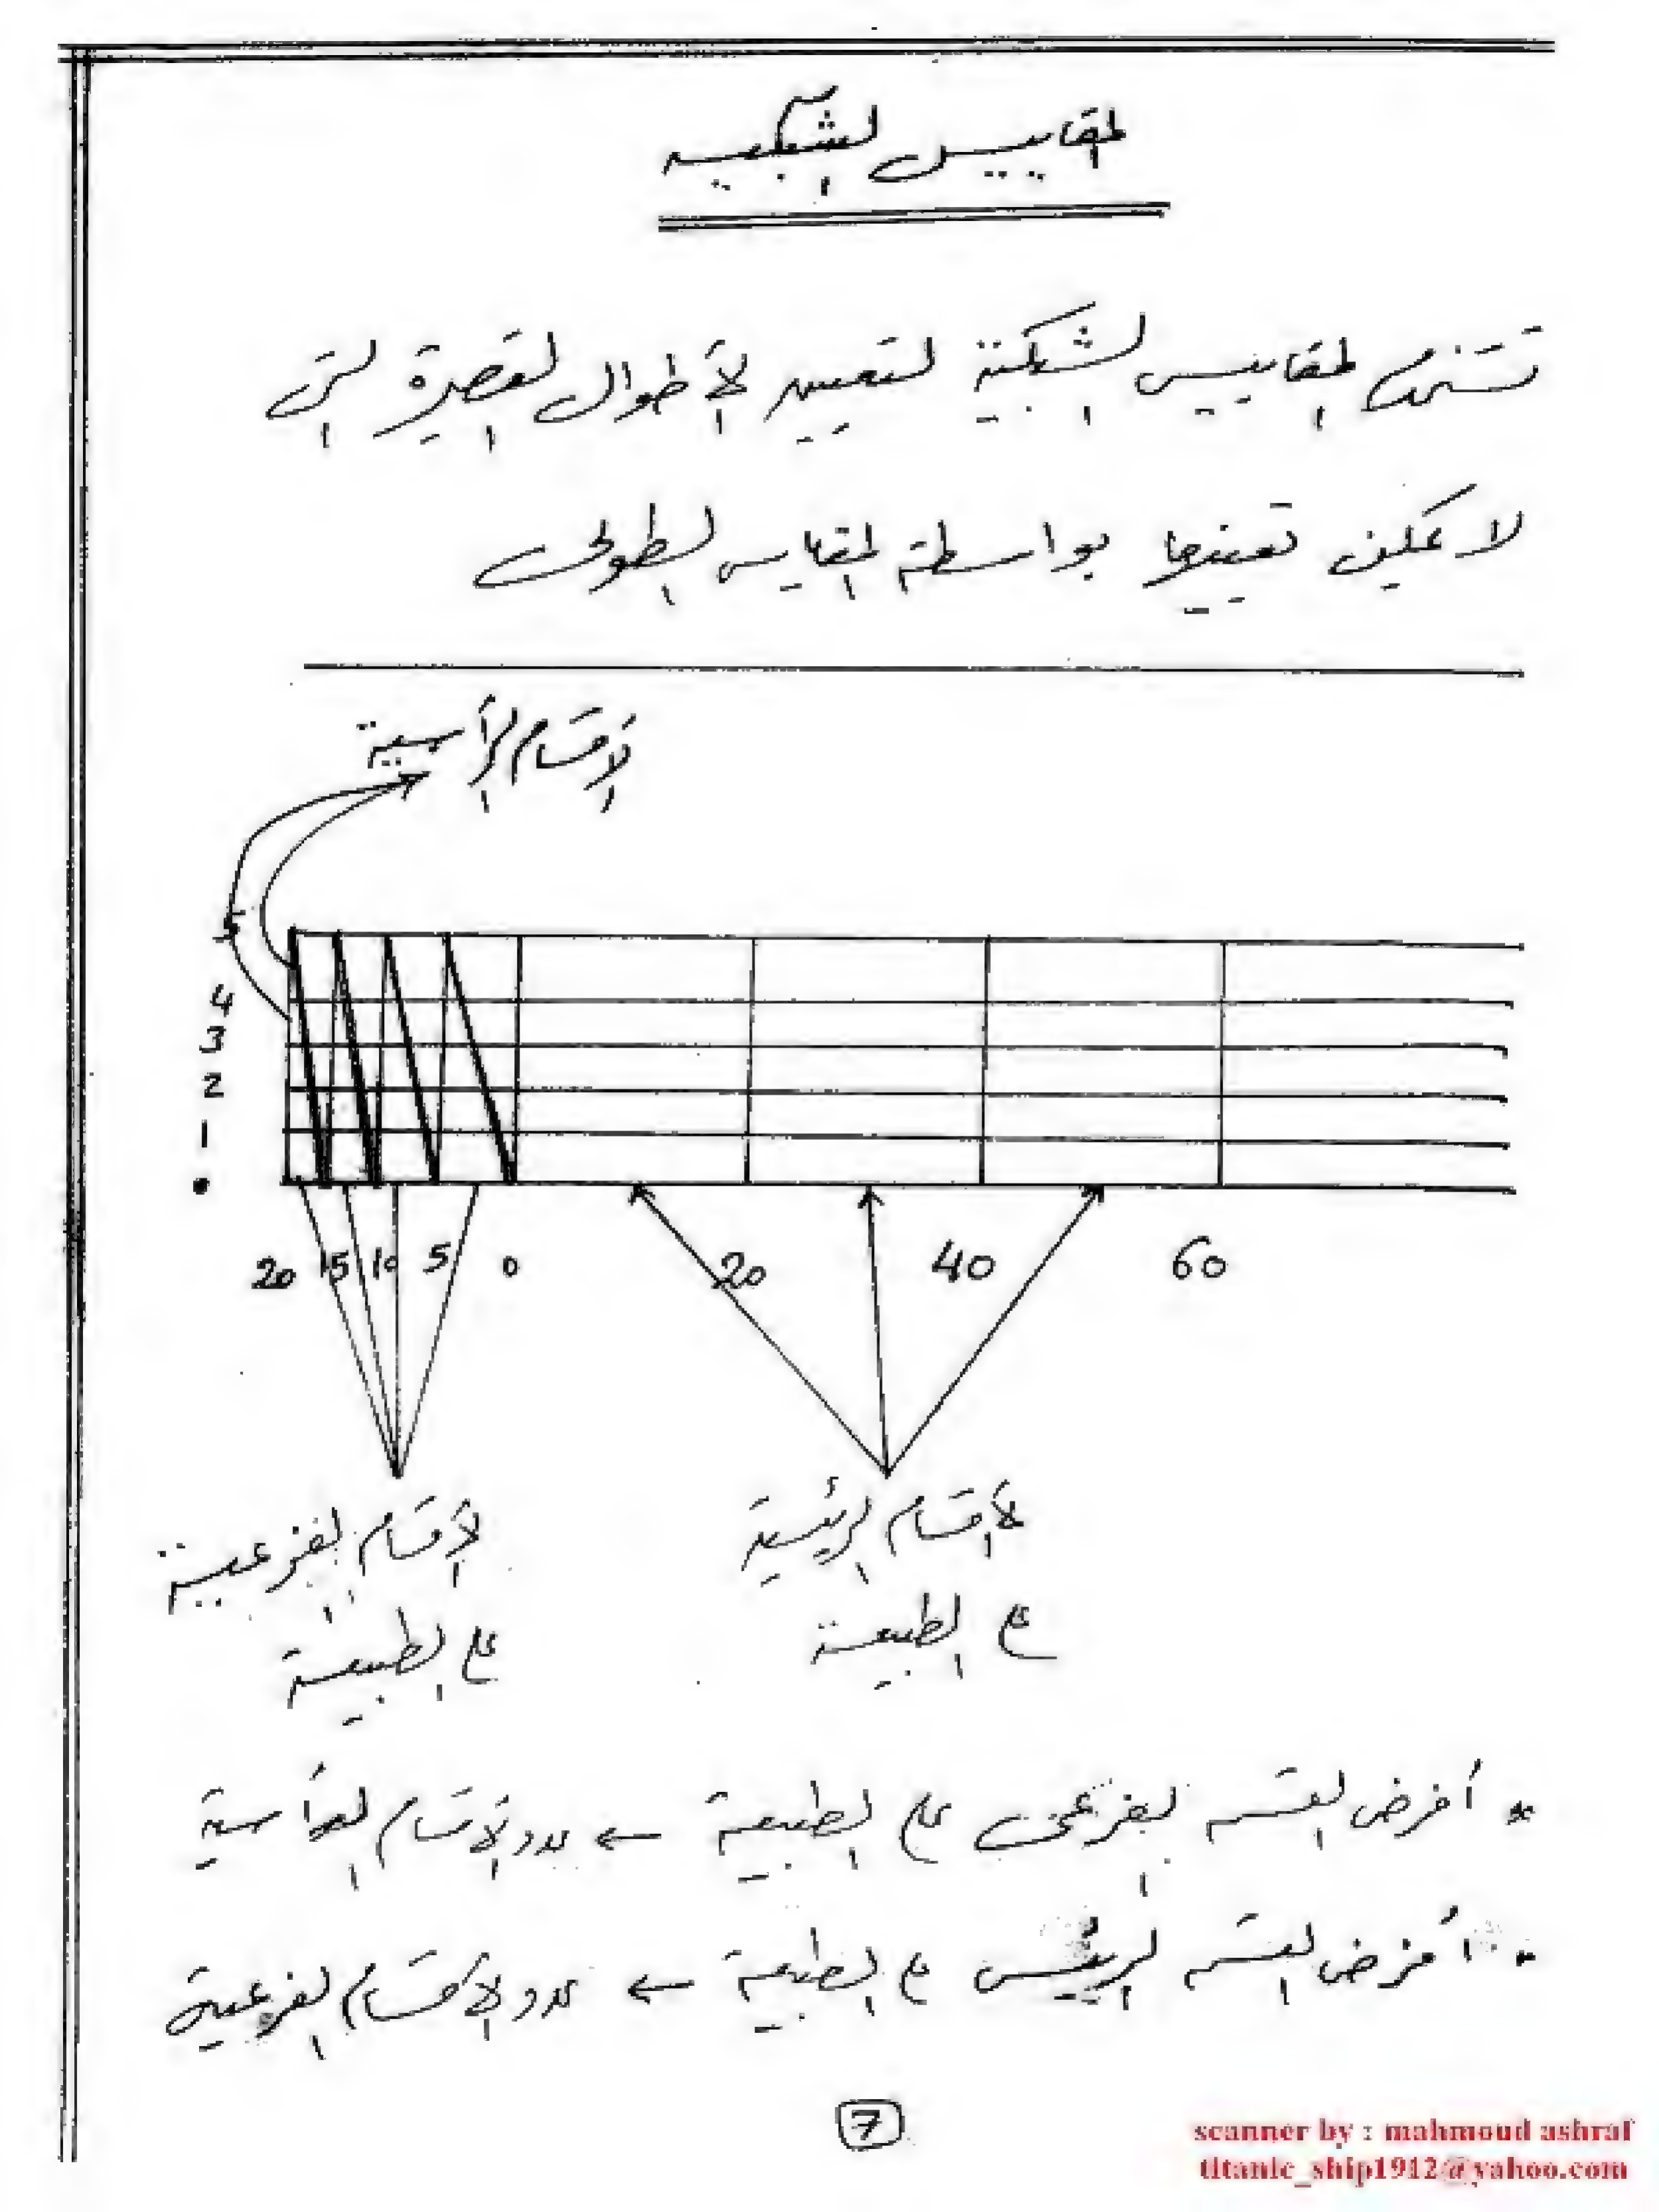 المقاييس الشبكيه
تستخدم المقاييس الشبكية لتعيين الأطوال القصيرة التى
لا يمكن تعيينها بواسطة المقياس الطولى
الأقسام الرأسية
5
4
3
2
1
•
20 15 10 5 0 20 40 60
الأقسام الفرعية
على الطبيعة
الأقسام الرئيسية
على الطبيعة
* أفرض القسم الفرعى على الطبيعة ← عدد الأقسام الرأسية
* أفرض القسم الرئيسى على الطبيعة ← عدد الأقسام الفرعية
7
scanner by : mahmoud ashraf
titanic_ship1912@yahoo.com